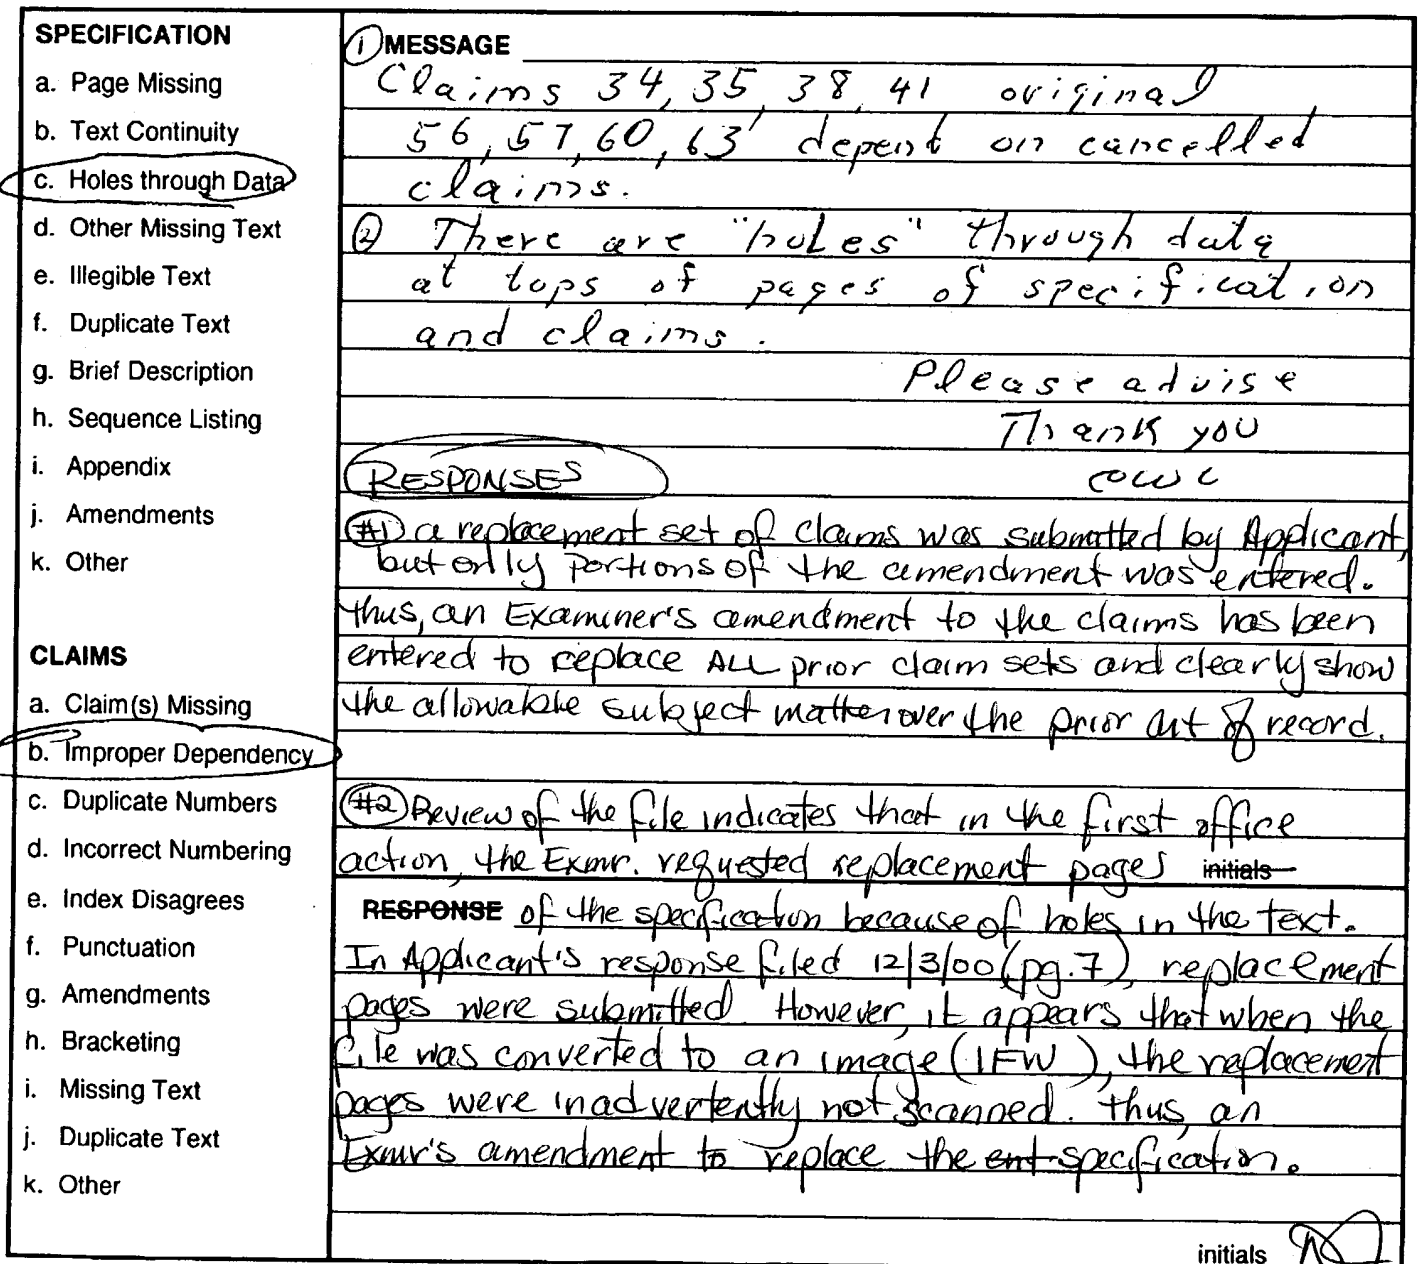 SPECIFICATION
a. Page Missing
b. Text Continuity
c. Holes through Data
d. Other Missing Text
e. Illegible Text
f. Duplicate Text
g. Brief Description
h. Sequence Listing
i. Appendix
j. Amendments
k. Other
CLAIMS
a. Claim(s) Missing
b. Improper Dependency
c. Duplicate Numbers
d. Incorrect Numbering
e. Index Disagrees
f. Punctuation
g. Amendments
h. Bracketing
i. Missing Text
j. Duplicate Text
k. Other
① MESSAGE
Claims 34, 35, 38, 41 original
56, 57, 60, 63 depend on cancelled
claims.
② There are "holes" through data
at tops of pages of specification
and claims.
Please advise
Thank you
RESPONSES
#1) a replacement set of claims was submitted by Applicant,
but only portions of the amendment was entered.
thus, an Examiner's amendment to the claims has been
entered to replace ALL prior claim sets and clearly show
the allowable subject matter over the prior art of record.
#2) Review of the file indicates that in the first office
action, the Exmr. requested replacement pages initials
RESPONSE of the specification because of holes in the text.
In Applicant's response filed 12/3/00 (pg.7), replacement
pages were submitted. However, it appears that when the
file was converted to an image (IFW), the replacement
pages were inadvertently not scanned. thus, an
Exmr's amendment to replace the ent specification.
initials